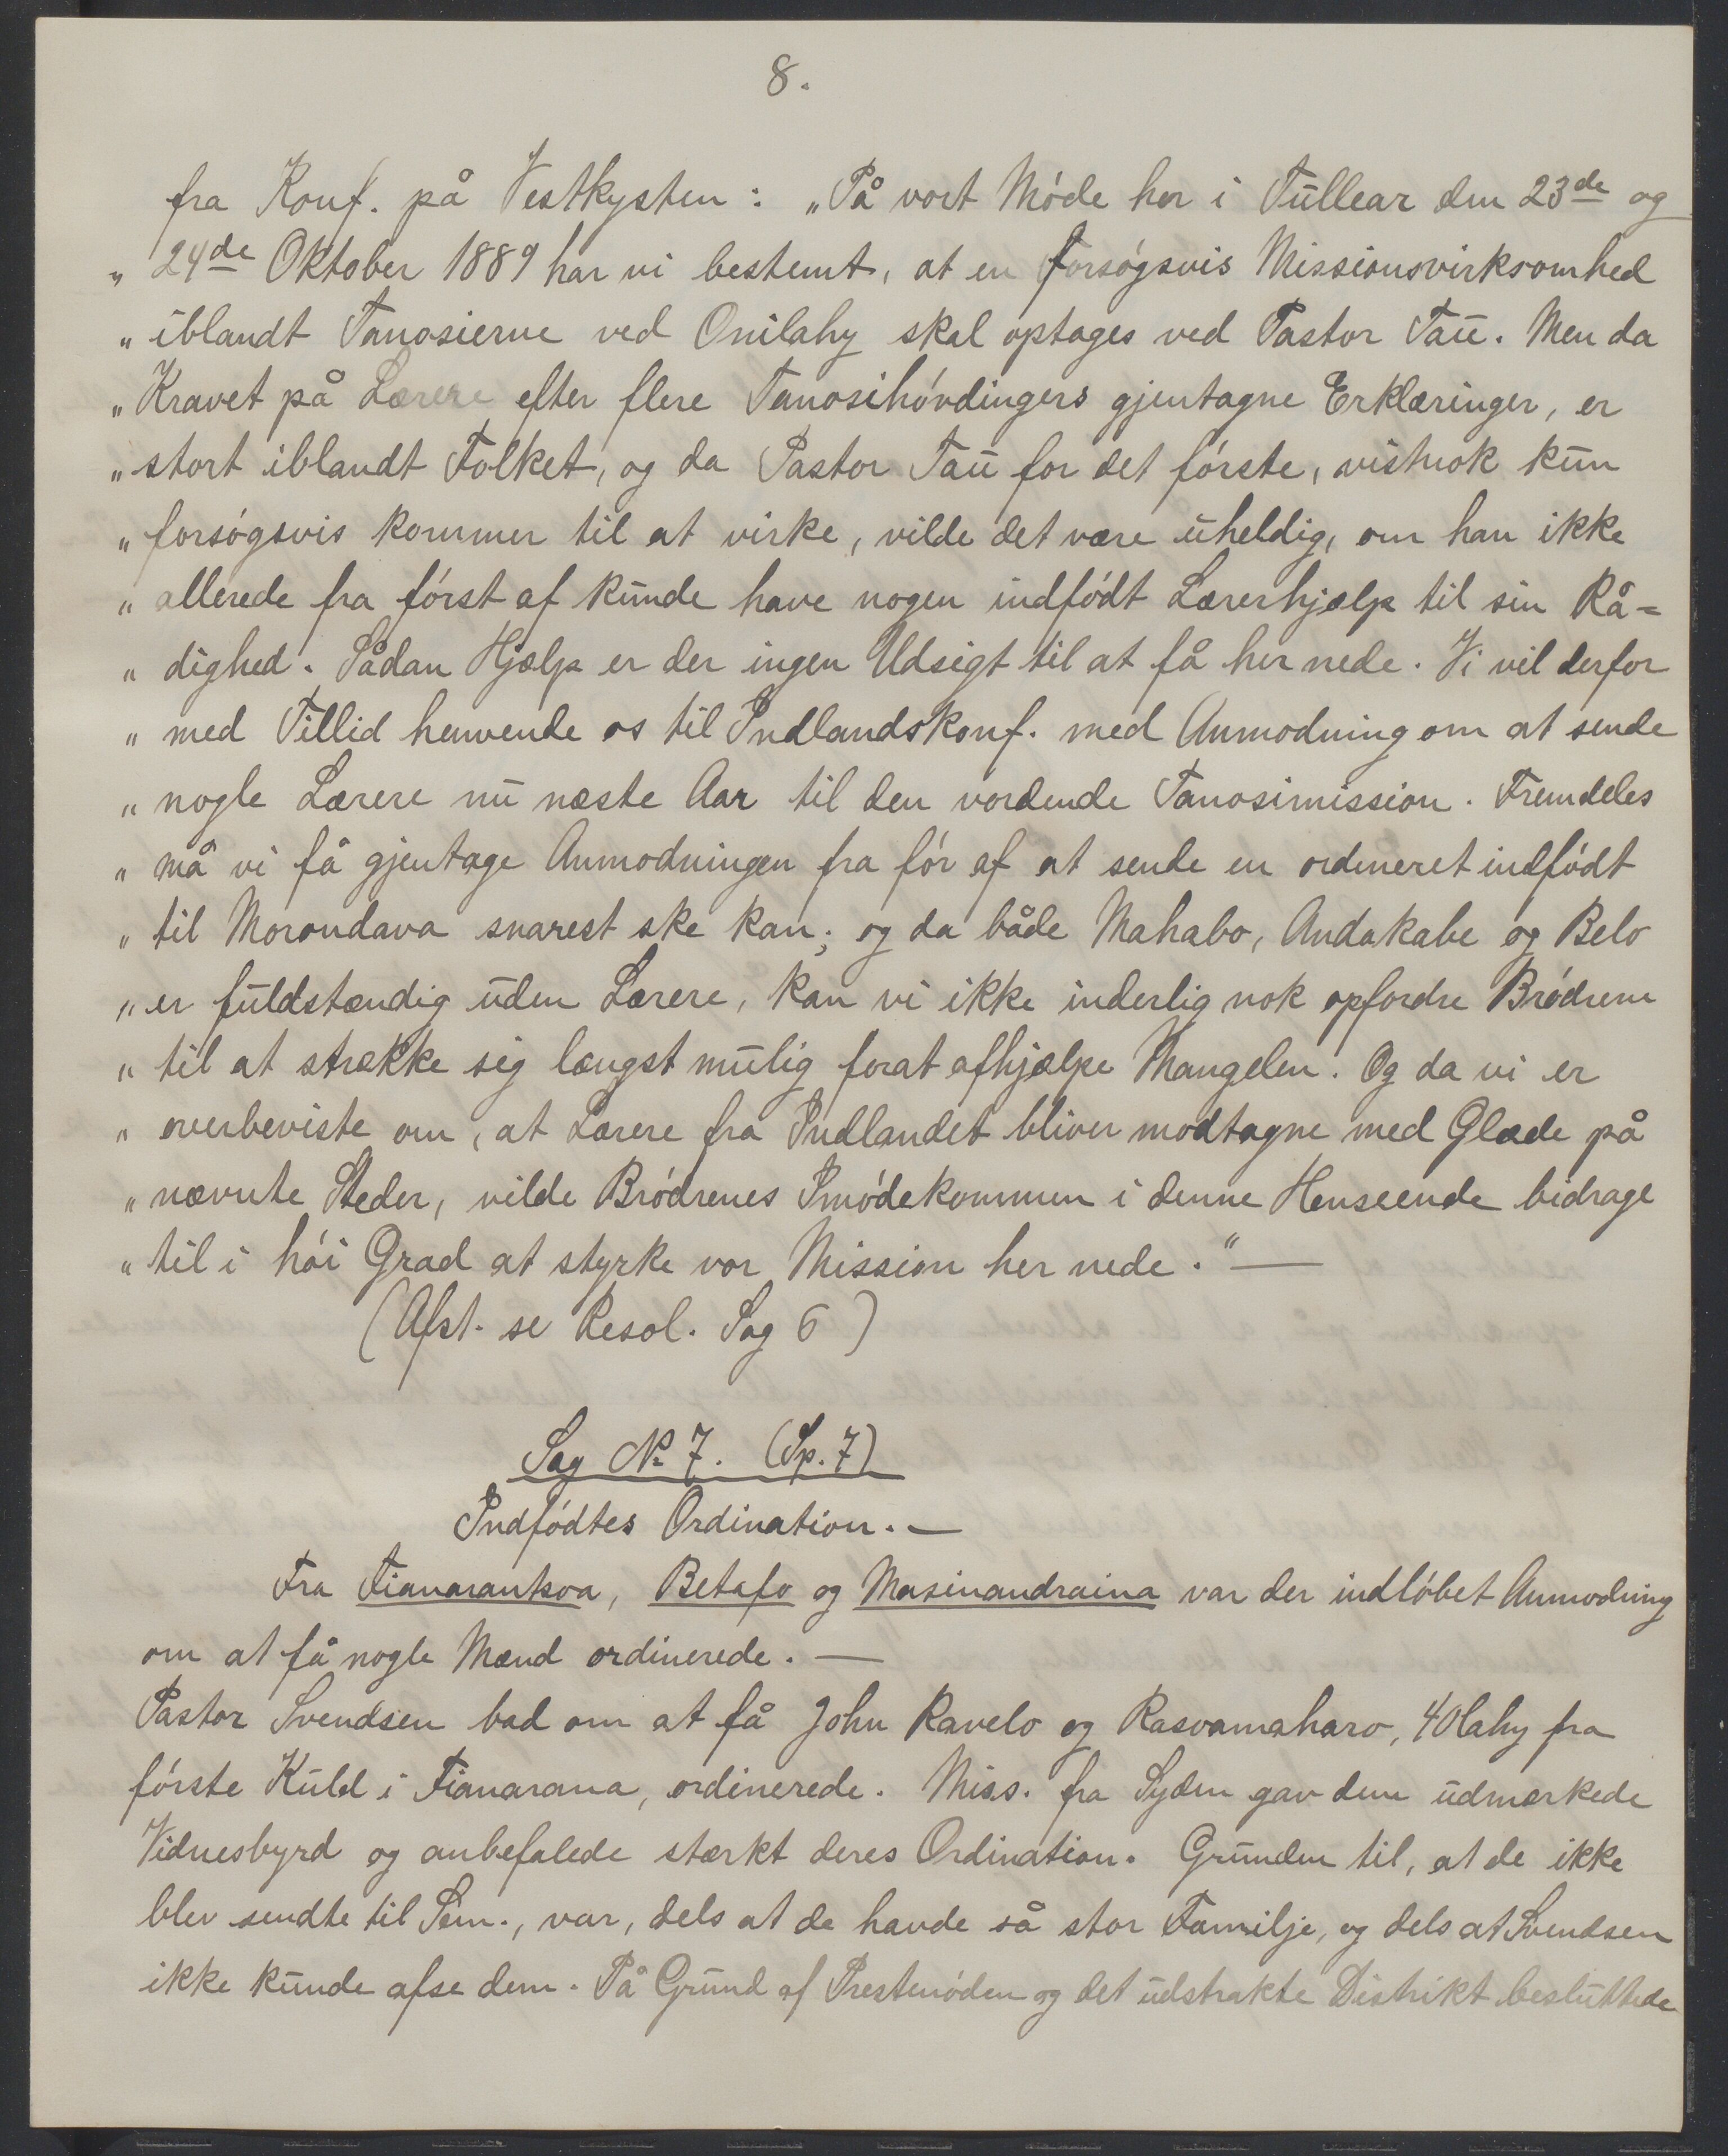 8.
fra Konf. på Vestkysten: „På vort Móde her i Tullear den 23de og
„ 24de Oktober 1889 har vi bestemt, at en forsógsvis Missionsvirksomhed
„ iblandt Tanosierne ved Onilahy skal optages ved Pastor Tou. Men da
„ Kravet på Lærere efter flere Tanosihóvdingers gjentagne Erklæringer, er
„ stort iblandt Folket, og da Pastor Tou for det fórste, vistnok kun
„ forsógsvis kommer til at virke, vilde det være uheldig, om han ikke
„ allerede fra fórst af kunde have nogen indfódt Lærerhjælp til sin Rå=
„ dighed. Sådan Hjælp er der ingen Udsigt til at få her nede. Vi vil derfor
„ med Tillid henvende os til Indlandskonf. med Anmodning om at sende
„ nogle Lærere nu næste Aar til den vordende Tanosimission. Fremdeles
„ må vi få gjentage Anmodningen fra fór af at sende en ordineret indfódt
„ til Morondava snarest ske kan; og da både Mahabo, Andakabe og Belo
„ er fuldstændig uden Lærere, kan vi ikke inderlig nok opfordre Bródrene
„ til at strække sig længst mulig forat afhjælpe Mangelen. Og da vi er
„ overbeviste om, at Lærere fra Indlandet bliver modtagne med Glæde på
„ nævnte Steder, vilde Bródrenes Imódekommen i denne Henseende bidrage
„ til i hói Grad at styrke vor Mission her nede.“ —
(Afst. se Resol. Sag 6)
Sag № 7. (Sp. 7)
Indfódtes Ordination. —
Fra Fianarantsoa, Betafo og Masinandraina var der indlóbet Anmodning
om at få nogle Mænd ordinerede. —
Pastor Svendsen bad om at få John Ravelo og Rasoamaharo, 40lahy fra
fórste Kuld i Fianarana, ordinerede. Miss. fra Syden gav dem udmærkede
Vidnesbyrd og anbefalede stærkt deres Ordination. Grunden til, at de ikke
blev sendte til Sem., var, dels at de havde så stor Familje, og dels at Svendsen
ikke kunde afse dem. På Grund af Prestenóden og det udstrakte Distrikt besluttede